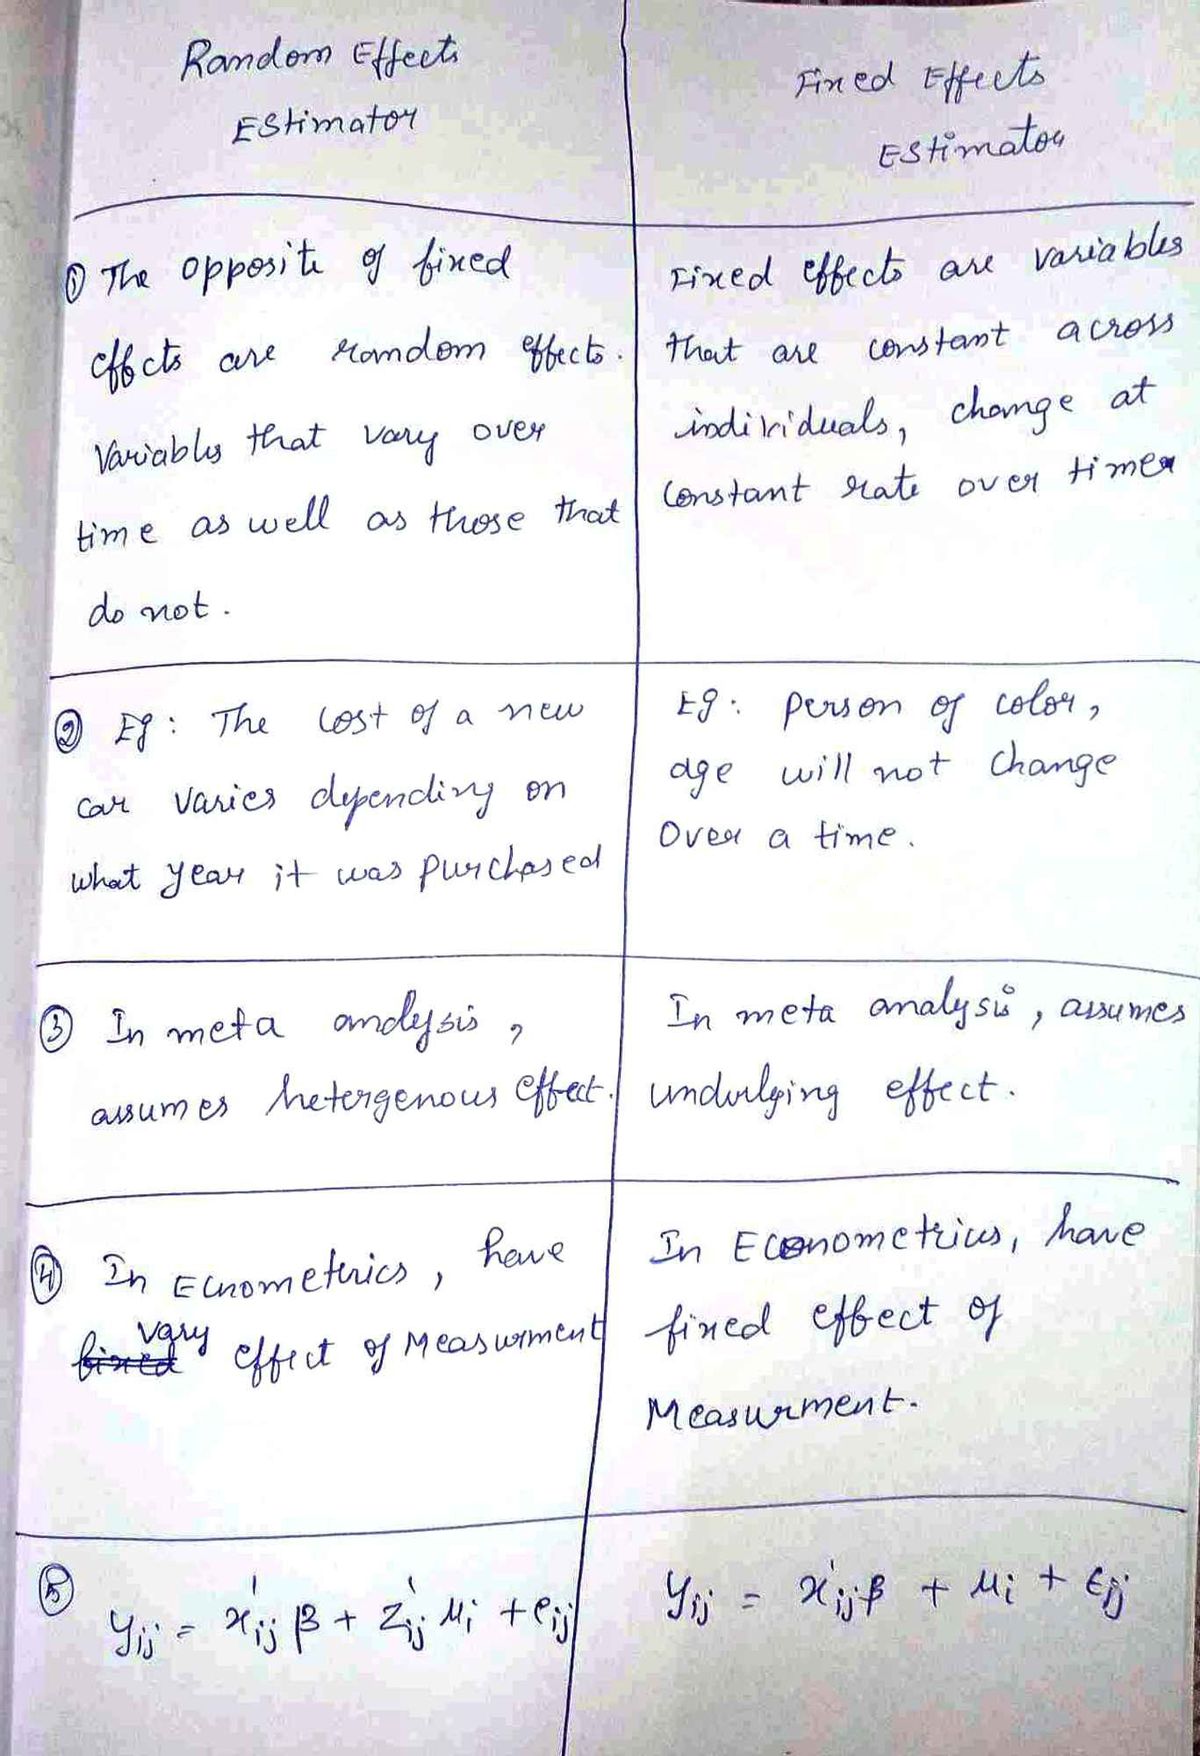 Random Effects
EStimator
Fixed Effects
EStimator
① The opposite of fixed
effects are random effects.
Variables that vary over
time as well as those that
do not.
Fixed effects are variables
that are constant across
individuals, change at
constant rate over time
② Eg: The cost of a new
car varies depending on
what year it was purchased
Eg: person of color,
age will not change
over a time.
③ In meta analysis,
assumes hetergenous effect.
In meta analysis, assumes
undulging effect.
④ In Ecnometrics, have
vary
fixed effect of Measurment
In Econometrics, have
fixed effect of
Measurment.
⑤
yij = x'ij β + z'ij μi + eij
yij = x'ij β + μi + ϵij